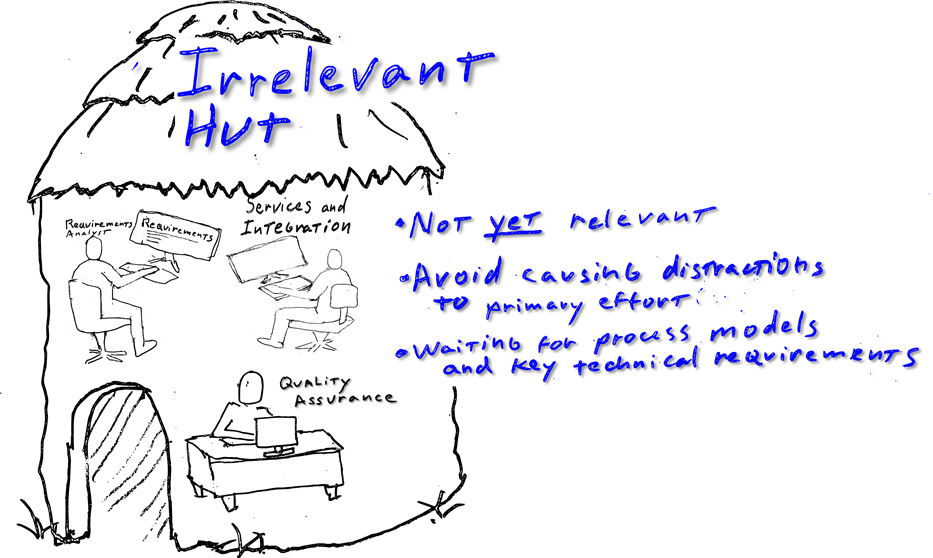 Irrelevant
Hut
Requirements
Analyst
Requirements
Services and
Integration
Quality
Assurance
• Not yet relevant
• Avoid causing distractions
to primary effort
• Waiting for process models
and key technical requirements